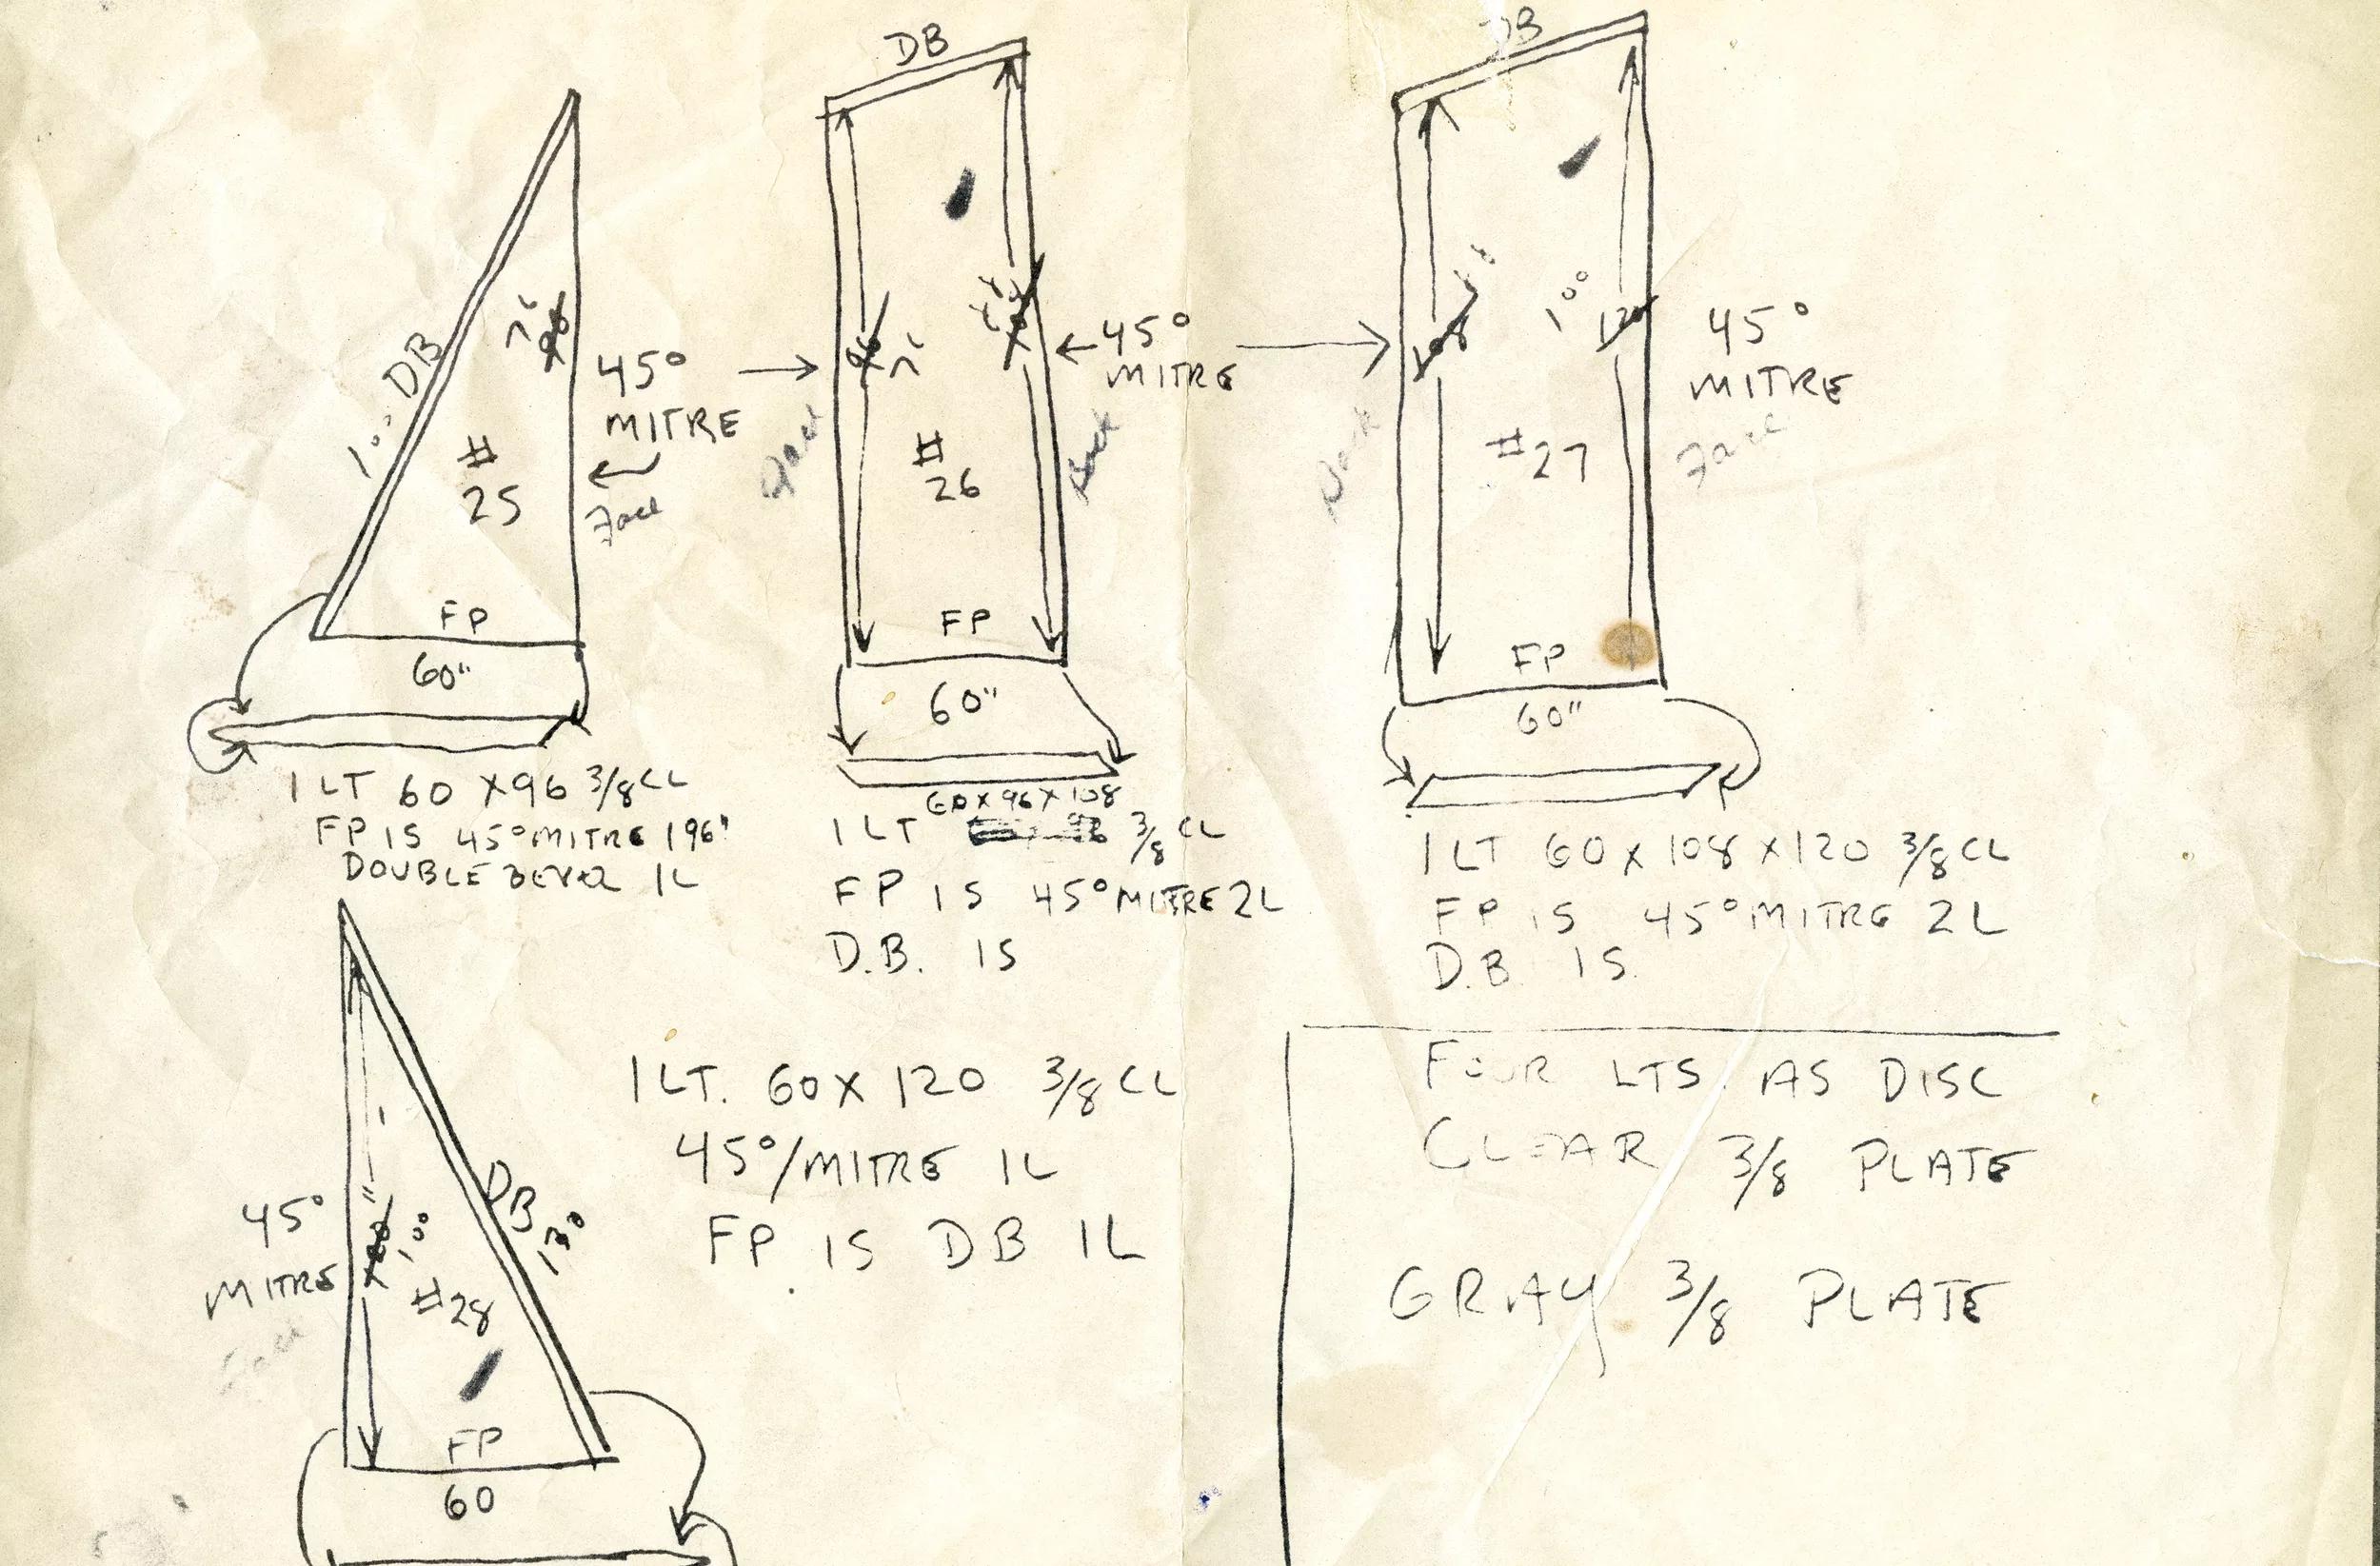 DB
100 DB
#
25
45°
MITRE
Face
FP
60"
1 LT 60 X 96 3/8 CL
FP IS 45° MITRE 1 96"
DOUBLE BEVEL 1L
DB
#
26
45°
MITRE
Back
FP
60"
60 X 96 X 108
1 LT 3/8 CL
FP IS 45° MITRE 2L
D.B. IS
100
120
108
#27
45°
MITRE
Face
FP
60"
1 LT 60 X 108 X 120 3/8 CL
FP IS 45° MITRE 2L
D.B IS.
45°
MITRE
Face
100
#28
DB
130
FP
60
1 LT. 60 X 120 3/8 CL
45°/MITRE 1L
FP IS DB 1L
FOUR LTS. AS DISC
CLEAR 3/8 PLATE
GRAY 3/8 PLATE